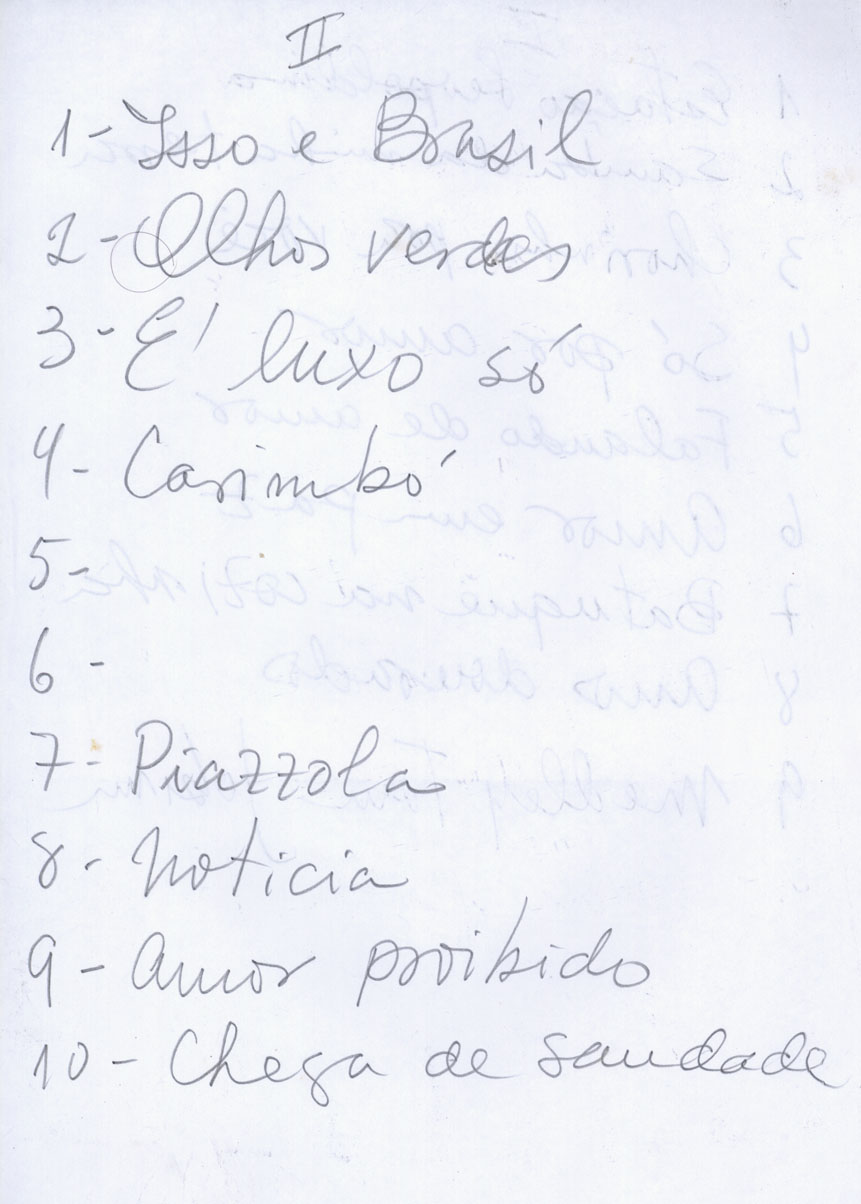 II
1- Isso e Brasil
2- Olhos verdes
3- É luxo só
4- Carimbó
5-
6-
7- Piazzola
8- noticia
9- amor proibido
10- Chega de saudade